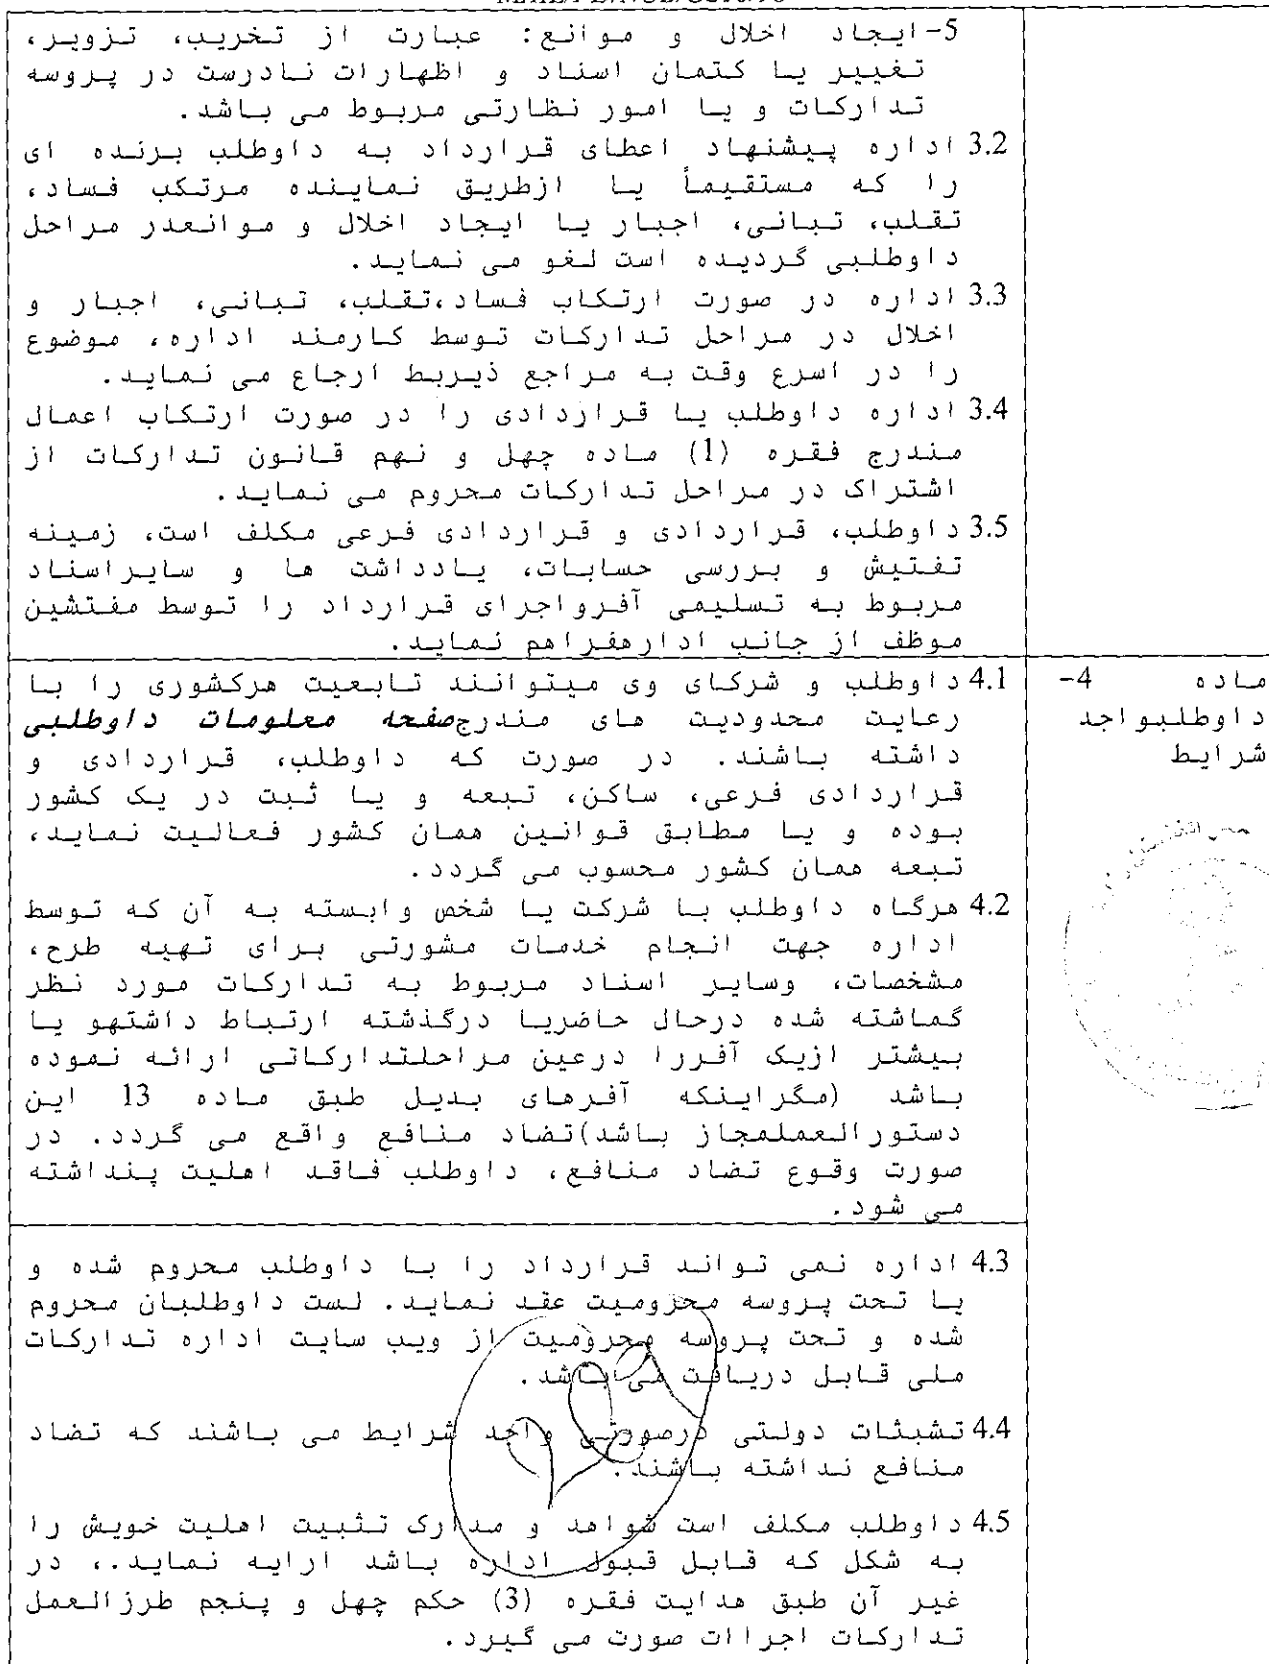 5-ایجاد اخلال و موانع: عبارت از تخریب، تزویر،
تغییر یا کتمان اسناد و اظهارات نادرست در پروسه
تدارکات و یا امور نظارتی مربوط می باشد.
3.2 اداره پیشنهاد اعطای قرارداد به داوطلب برنده ای
را که مستقیماً یا ازطریق نماینده مرتکب فساد،
تقلب، تبانی، اجبار یا ایجاد اخلال و موانعدر مراحل
داوطلبی گردیده است لغو می نماید.
3.3 اداره در صورت ارتکاب فساد،تقلب، تبانی، اجبار و
اخلال در مراحل تدارکات توسط کارمند اداره، موضوع
را در اسرع وقت به مراجع ذیربط ارجاع می نماید.
3.4 اداره داوطلب یا قراردادی را در صورت ارتکاب اعمال
مندرج فقره (1) ماده چهل و نهم قانون تدارکات از
اشتراک در مراحل تدارکات محروم می نماید.
3.5 داوطلب، قراردادی و قراردادی فرعی مکلف است، زمینه
تفتیش و بررسی حسابات، یادداشت ها و سایراسناد
مربوط به تسلیمی آفرواجرای قرارداد را توسط مفتشین
موظف از جانب ادارهفراهم نماید.
ماده 4-
داوطلبواجد
شرایط
4.1 داوطلب و شرکای وی میتوانند تابعیت هرکشوری را با
رعایت محدودیت های مندرجصفحه معلومات داوطلبی
داشته باشند. در صورت که داوطلب، قراردادی و
قراردادی فرعی، ساکن، تبعه و یا ثبت در یک کشور
بوده و یا مطابق قوانین همان کشور فعالیت نماید،
تبعه همان کشور محسوب می گردد.
4.2 هرگاه داوطلب با شرکت یا شخص وابسته به آن که توسط
اداره جهت انجام خدمات مشورتی برای تهیه طرح،
مشخصات، وسایر اسناد مربوط به تدارکات مورد نظر
گماشته شده درحال حاضریا درگذشته ارتباط داشتهو یا
بیشتر ازیک آفررا درعین مراحلتدارکاتی ارائه نموده
باشد (مگراینکه آفرهای بدیل طبق ماده 13 این
دستورالعملمجاز باشد)تضاد منافع واقع می گردد. در
صورت وقوع تضاد منافع، داوطلب فاقد اهلیت پنداشته
می شود.
4.3 اداره نمی تواند قرارداد را با داوطلب محروم شده و
یا تحت پروسه محرومیت عقد نماید. لست داوطلبان محروم
شده و تحت پروسه محرومیت از ویب سایت اداره تدارکات
ملی قابل دریافت می باشد.
4.4 تشبثات دولتی درصورتی واجد شرایط می باشند که تضاد
منافع نداشته باشند.
4.5 داوطلب مکلف است شواهد و مدارک تثبیت اهلیت خویش را
به شکل که قابل قبول اداره باشد ارایه نماید.، در
غیر آن طبق هدایت فقره (3) حکم چهل و پنجم طرزالعمل
تدارکات اجراات صورت می گیرد.